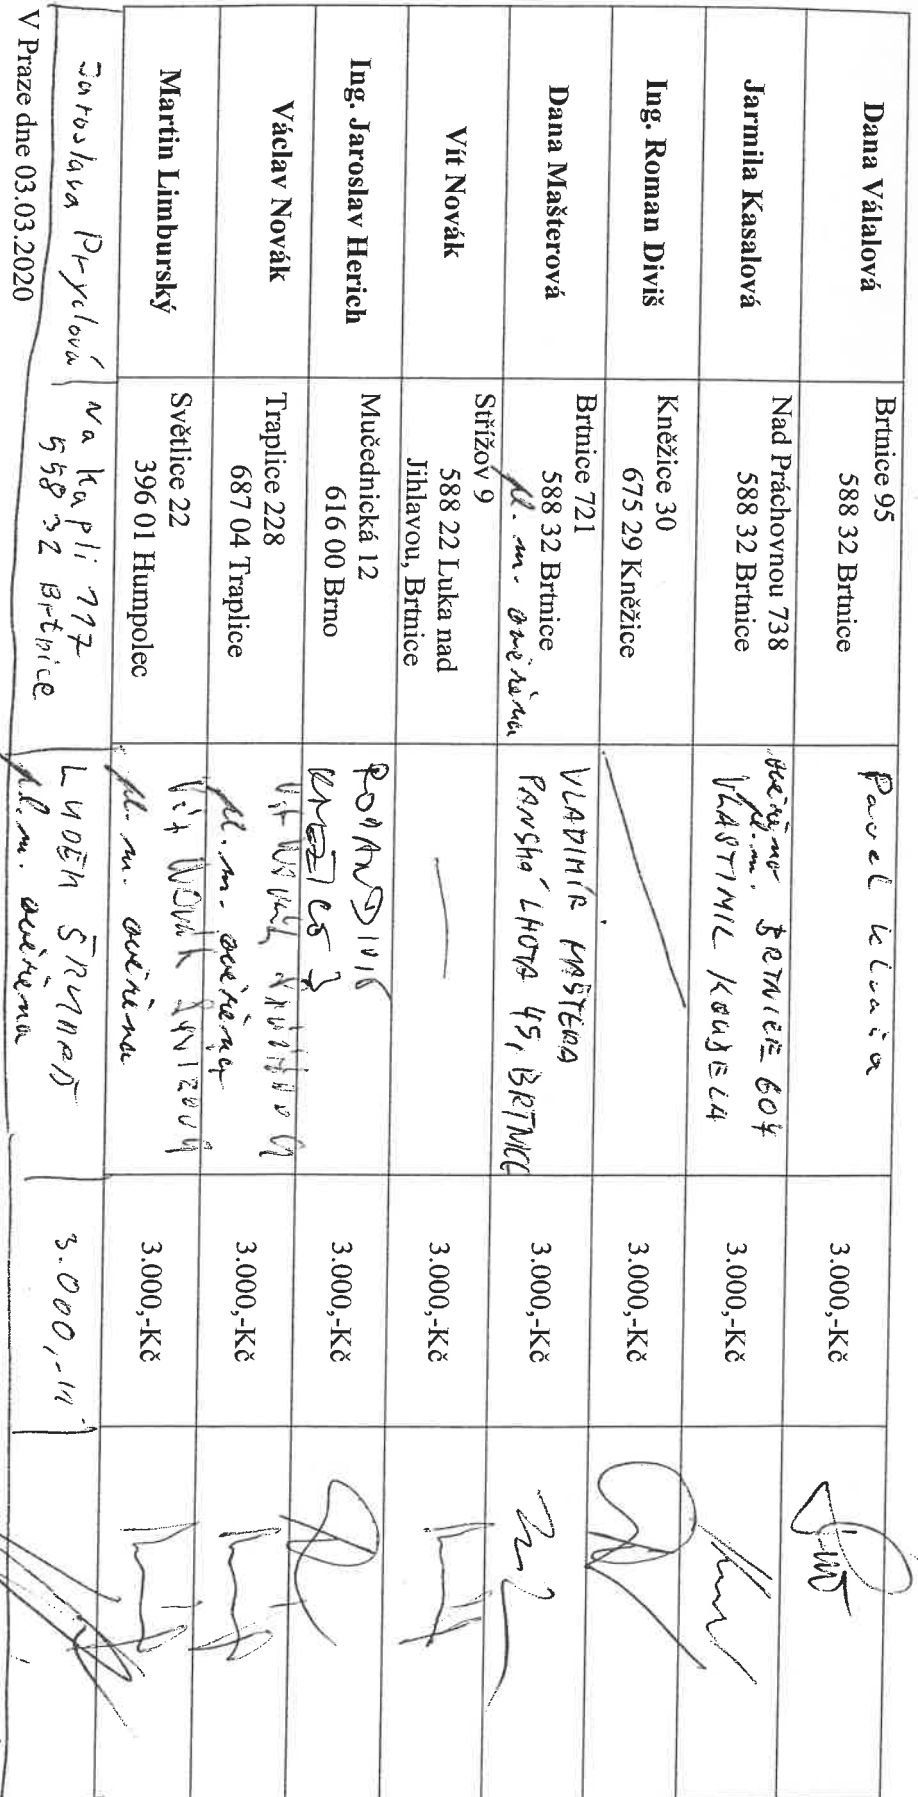 Dana Válalová
Brtnice 95
588 32 Brtnice
Pavel
3.000,-Kč
Jarmila Kasalová
Nad Práchovnou 738
588 32 Brtnice
ověřeno pl.m. BRTNICE 604
VLASTIMIL KOUDELA
3.000,-Kč
Ing. Roman Diviš
Kněžice 30
675 29 Kněžice
3.000,-Kč
Dana Mašterová
Brtnice 721
588 32 Brtnice
pl. m. ověřena
VLADIMÍR MAŠTERA
PANSKÁ LHOTA 45, BRTNICE
3.000,-Kč
Vít Novák
Střížov 9
588 22 Luka nad
Jihlavou, Brtnice
3.000,-Kč
Ing. Jaroslav Herich
Mučednická 12
616 00 Brno
ROMAN DIVIŠ
3.000,-Kč
Václav Novák
Traplice 228
687 04 Traplice
Vít Novák
pl. m. ověřena
3.000,-Kč
Martin Limburský
Světlice 22
396 01 Humpolec
Vít Novák
pl. m. ověřena
3.000,-Kč
Jaroslava Prýclová
Na Kapli 117
588 32 Brtnice
LUDĚK
pl. m. ověřena
3.000,-
V Praze dne 03.03.2020